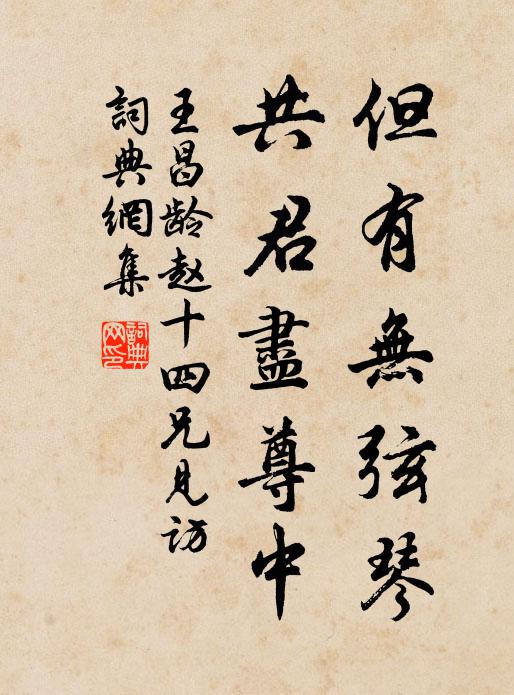 但有無弦琴
共君盡尊中
王昌龄赵十四兄見访
詞典網集
詞典網印